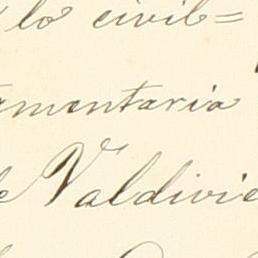 lo civil=
amentaria
de Valdivie